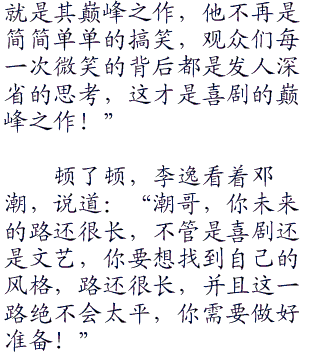 就是其巅峰之作，他不再是
简简单单的搞笑，观众们每
一次微笑的背后都是发人深
省的思考，这才是喜剧的巅
峰之作！”
顿了顿，李逸看着邓
潮，说道：“潮哥，你未来
的路还很长，不管是喜剧还
是文艺，你要想找到自己的
风格，路还很长，并且这一
路绝不会太平，你需要做好
准备！”